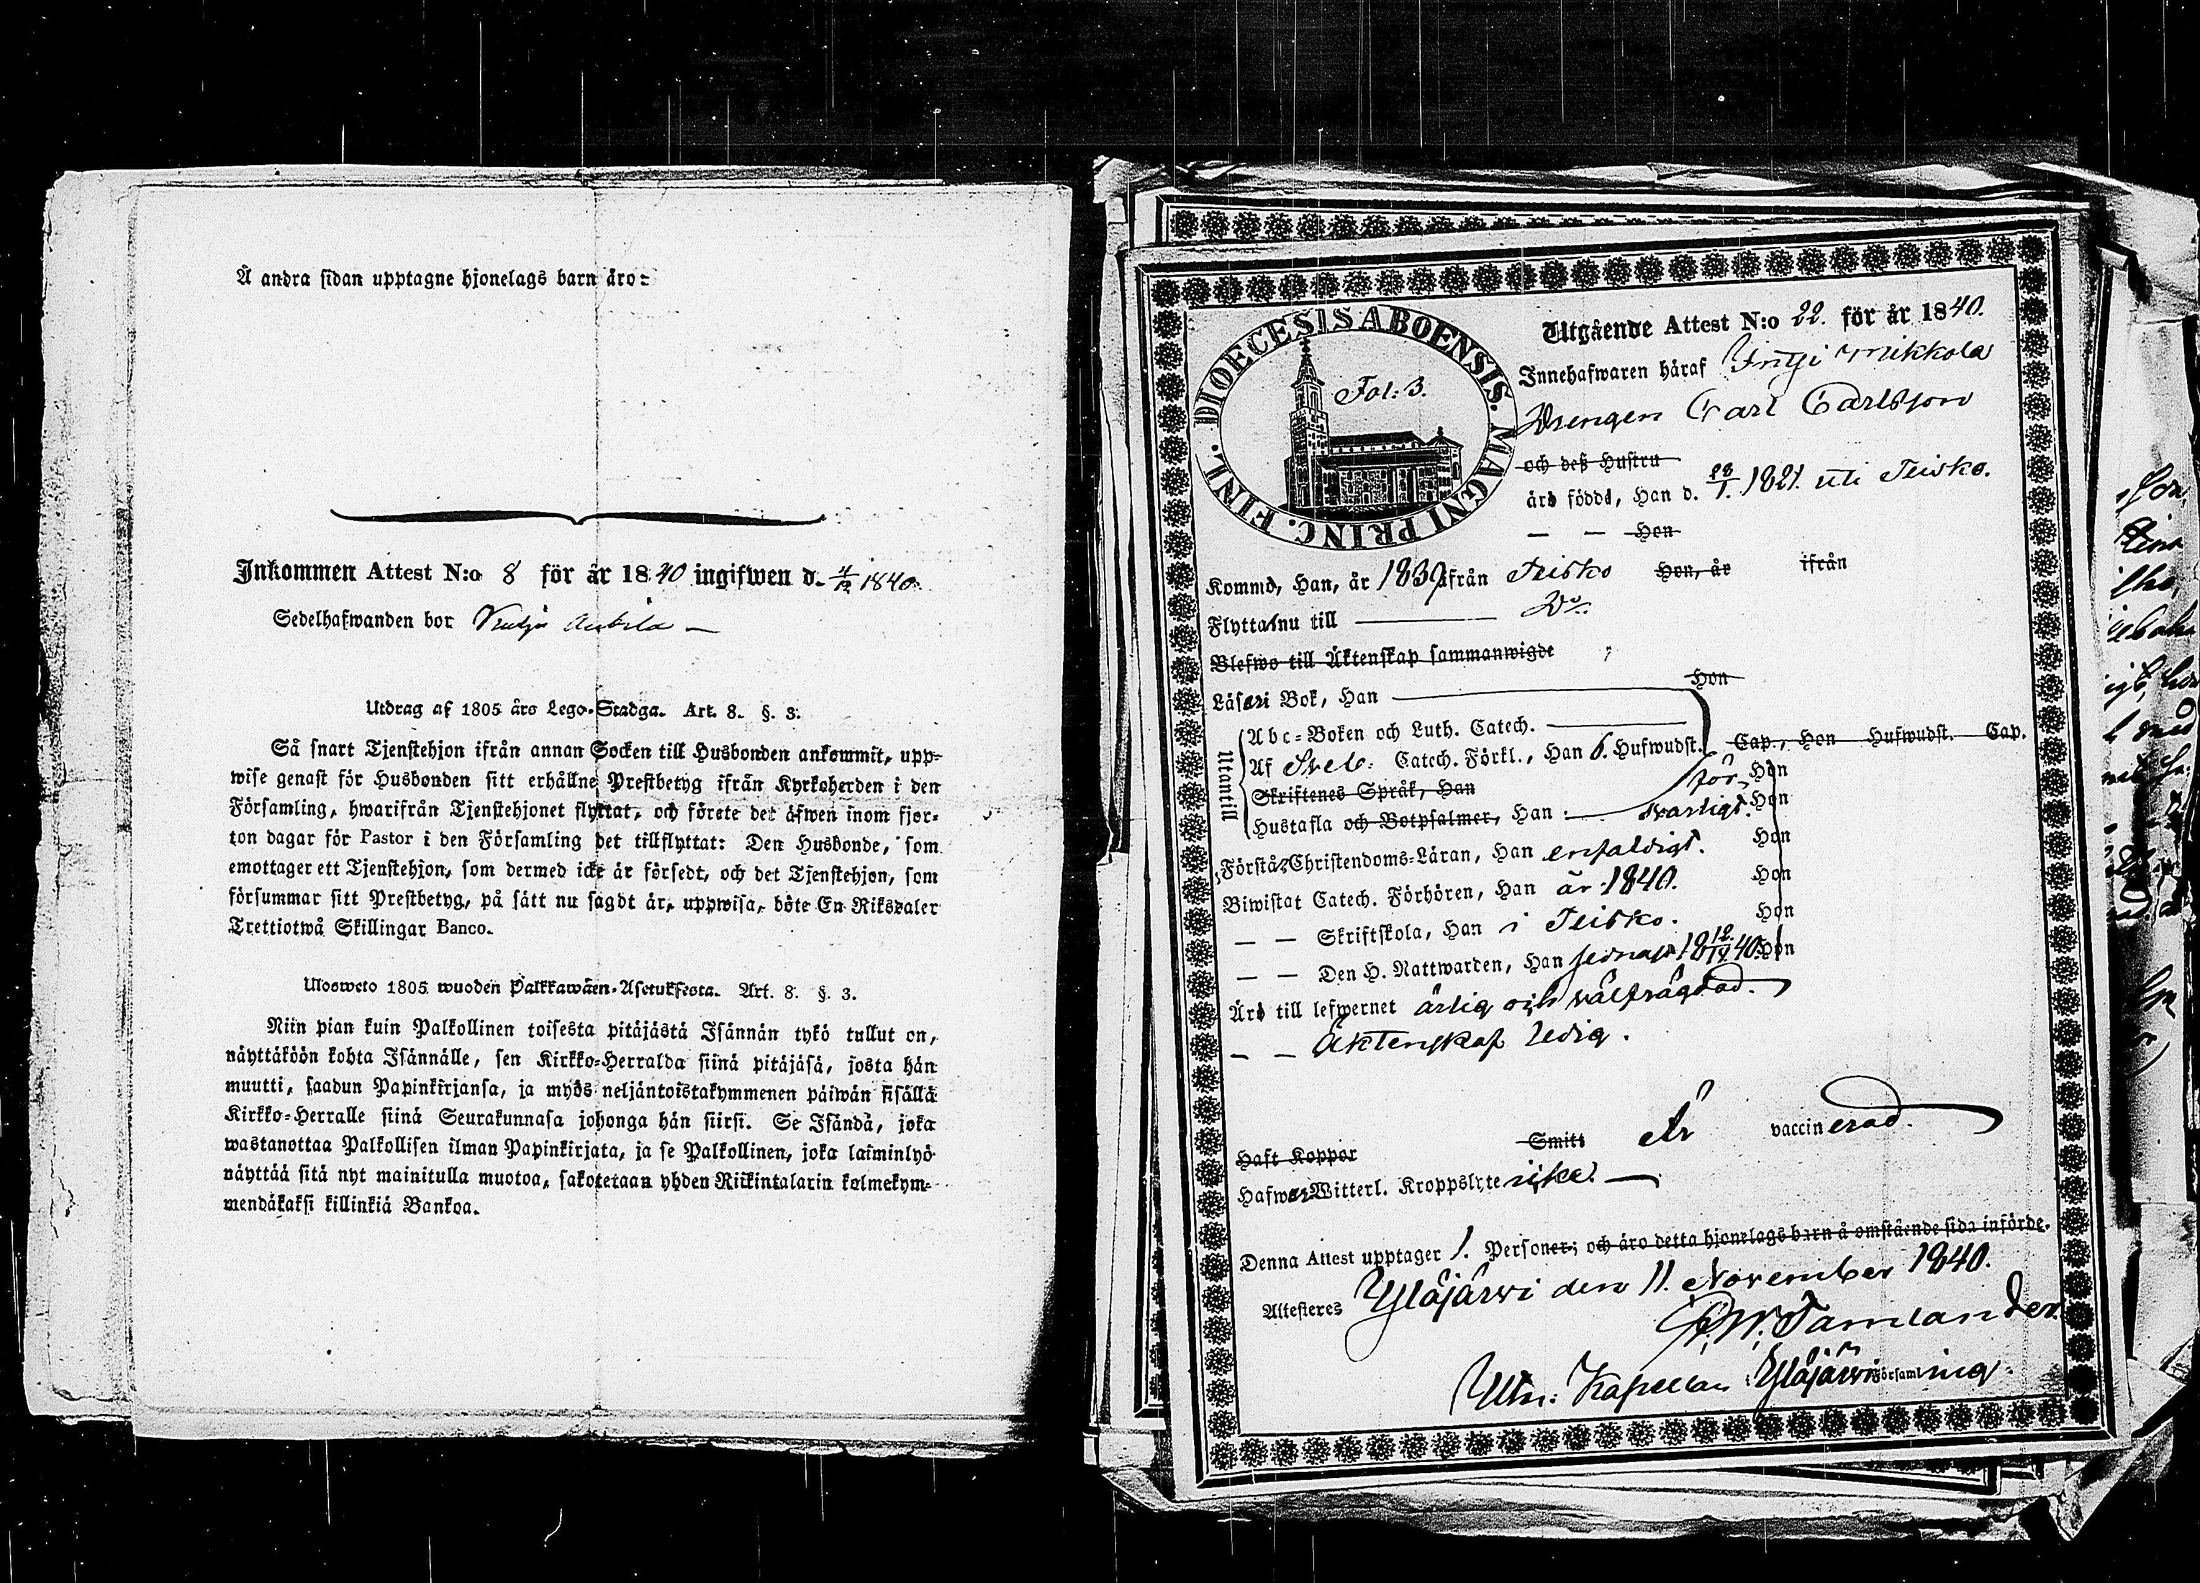 Å andra sidan upptagne hjonelags barn äro:
Inkommen Attest N:o 8 för år 1840 ingifwen d. 4/12 1840.
Sedelhafwanden bor
Utdrag af 1805 års Lego-Stadga. Art. 8. §. 3.
Så snart Tjenstehjon ifrån annan Socken till Husbonden ankommit, upp-
wise genast för Husbonden sitt erhållne Prestbetyg ifrån Kyrkoherden i den
Församling, hwarifrån Tjenstehjonet flyttat, och förete det äfwen inom fjor-
ton dagar för Pastor i den Församling det tillflyttat: Den Husbonde, som
emottager ett Tjenstehjon, som dermed icke är försedt, och det Tjenstehjon, som
försummar sitt Prestbetyg, på sätt nu sagdt är, uppwisa, böte En Riksdaler
Trettiotwå Skillingar Banco.
Ulosweto 1805 wuoden Palkkawäen-Asetuksesta. Art. 8. §. 3.
Niin pian kuin Palkollinen toisesta pitäjästä Isännän tykö tullut on,
näyttäköön kohta Isännälle, sen Kirkko-Herralda siinä pitäjäsä, josta hän
muutti, saadun Papinkirjansa, ja myös neljäntoistakymmenen päiwän sisällä
Kirkko-Herralle siinä Seurakunnasa johonga hän siirsi. Se Isändä, joka
wastanottaa Palkollisen ilman Papinkirjata, ja se Palkollinen, joka laiminlyö
näyttää sitä nyt mainitulla muotoa, sakotetaan yhden Riikintalarin kolmekym-
mendäkaksi killinkiä Bankoa.
DIOECESIS ABOENSIS. MAGNI PRINC. FINL.
Fol: 3.
Utgående Attest N:o 22. för år 1840.
Innehafwaren häraf Mikkola
Drengen Carl Carlsson
och deß Hustru
äro födde, Han d. 28/1. 1821. uti Teisko.
— — Hon
Kommo, Han, år 1839 ifrån Teisko Hon, år ifrån
Flytta nu till — Do.
Blefwo till Äktenskap sammanwigde
Hon
Läser i Bok, Han
Utantill
Abc-Boken och Luth. Catech.
Af Sveb. Catech. Förkl., Han 6. Hufwudst. Cap., Hon Hufwudst. Cap.
Skriftenes Språk, Han Hon
Hustafla och Botpsalmer, Han : Hon
Förstår Christendoms-Läran, Han enfaldigt. Hon
Biwistat Catech. Förhören, Han år 1840. Hon
— — Skriftskola, Han i Teisko. Hon
— — Den H. Nattwarden, Han sednast 1840. Hon
Äro till lefwernet ärlig och välfrägdad.
— — Äktenskap ledig.
Haft Koppor Smitt Är vaccinerad.
Hafwer Witterl. Kroppslyte icke.
Denna Attest upptager 1. Personer; och äro detta hjonelags barn å omstående sida införde.
Attesteres Ylöjärwi den 11. November 1840.
Tamlander.
Kapellan i Ylöjärwi Församling.